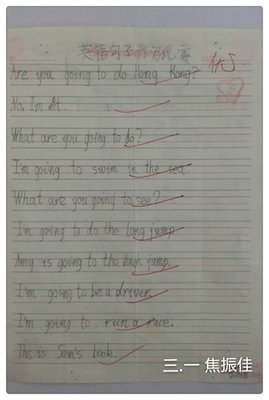 英语句子
Are you going to do Hong Kong?
No. I'm
What are you going to do?
I'm going to swim in the sea
What are you going to see?
I'm going to do the long jump
Amy is going to the high jump.
I'm going to be a driver.
I'm going to run a race.
This is Sam's book.
三.一 焦振佳